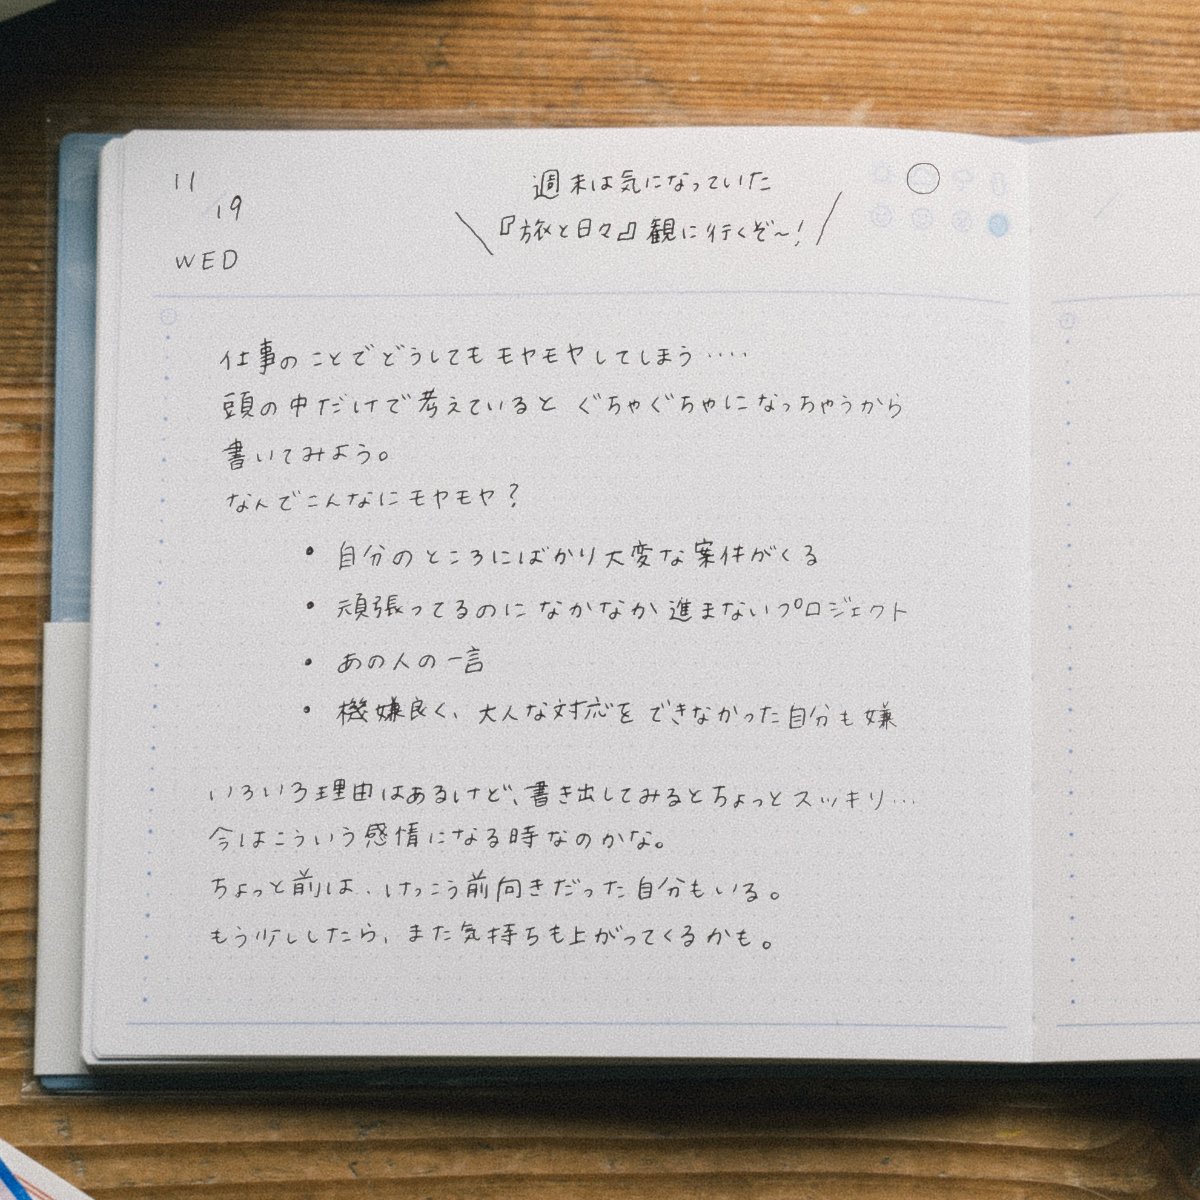 11
19
WED
週末は気になっていた
『旅と日々』観に行くぞ〜!
仕事のことでどうしてもモヤモヤしてしまう‥‥
頭の中だけで考えていると ぐちゃぐちゃになっちゃうから
書いてみよう。
なんでこんなにモヤモヤ?
• 自分のところにばかり大変な案件がくる
• 頑張ってるのになかなか進まないプロジェクト
• あの人の一言
• 機嫌良く、大人な対応をできなかった自分も嫌
いろいろ理由はあるけど、書き出してみるとちょっとスッキリ…
今はこういう感情になる時なのかな。
ちょっと前は、けっこう前向きだった自分もいる。
もう少ししたら、また気持ちも上がってくるかも。